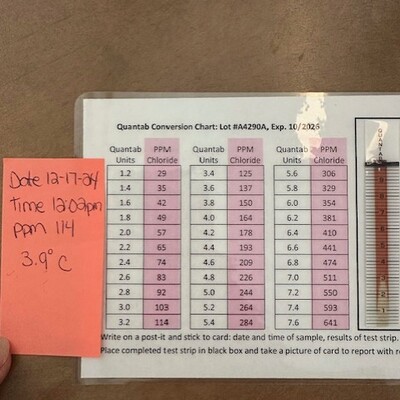 Date 12-17-24
Time 12:02pm
ppm 114
3.9° C
Quantab Conversion Chart: Lot #A4290A, Exp. 10/2026
Quantab Units PPM Chloride Quantab Units PPM Chloride Quantab Units PPM Chloride
1.2 29 3.4 125 5.6 306
1.4 35 3.6 137 5.8 329
1.6 42 3.8 150 6.0 354
1.8 49 4.0 164 6.2 381
2.0 57 4.2 178 6.4 410
2.2 65 4.4 193 6.6 441
2.4 74 4.6 209 6.8 474
2.6 83 4.8 226 7.0 511
2.8 92 5.0 244 7.2 550
3.0 103 5.2 264 7.4 593
3.2 114 5.4 284 7.6 641
Write on a post-it and stick to card: date and time of sample, results of test strip.
Place completed test strip in black box and take a picture of card to report with
QUANTAB